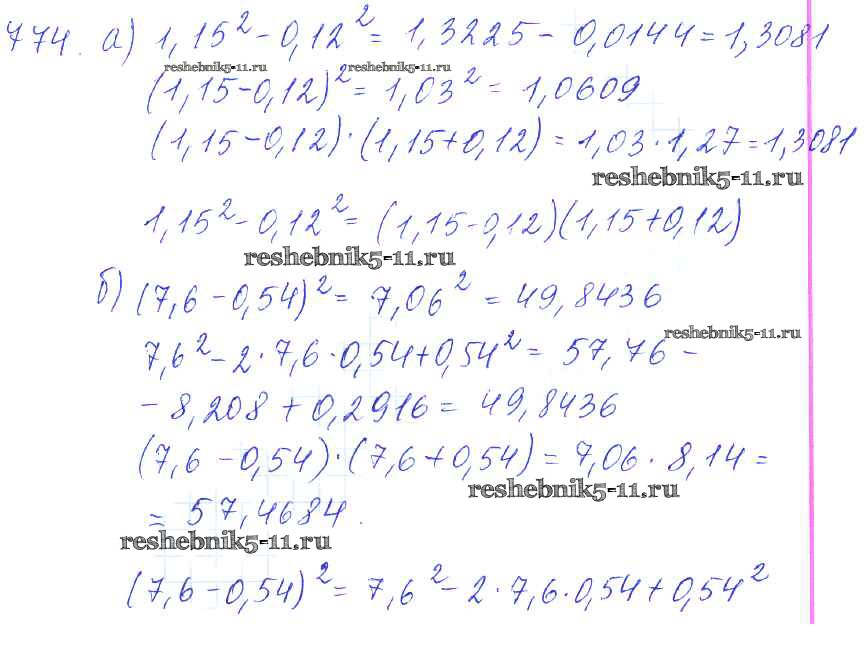 774. а) 1,15² - 0,12² = 1,3225 - 0,0144 = 1,3081
reshebnik5-11.ru reshebnik5-11.ru
(1,15 - 0,12)² = 1,03² = 1,0609
(1,15 - 0,12) · (1,15 + 0,12) = 1,03 · 1,27 = 1,3081
reshebnik5-11.ru
1,15² - 0,12² = (1,15 - 0,12)(1,15 + 0,12)
reshebnik5-11.ru
б) (7,6 - 0,54)² = 7,06² = 49,8436
reshebnik5-11.ru
7,6² - 2 · 7,6 · 0,54 + 0,54² = 57,76 -
- 8,208 + 0,2916 = 49,8436
(7,6 - 0,54) · (7,6 + 0,54) = 7,06 · 8,14 =
reshebnik5-11.ru
= 57,4684.
reshebnik5-11.ru
(7,6 - 0,54)² = 7,6² - 2 · 7,6 · 0,54 + 0,54²